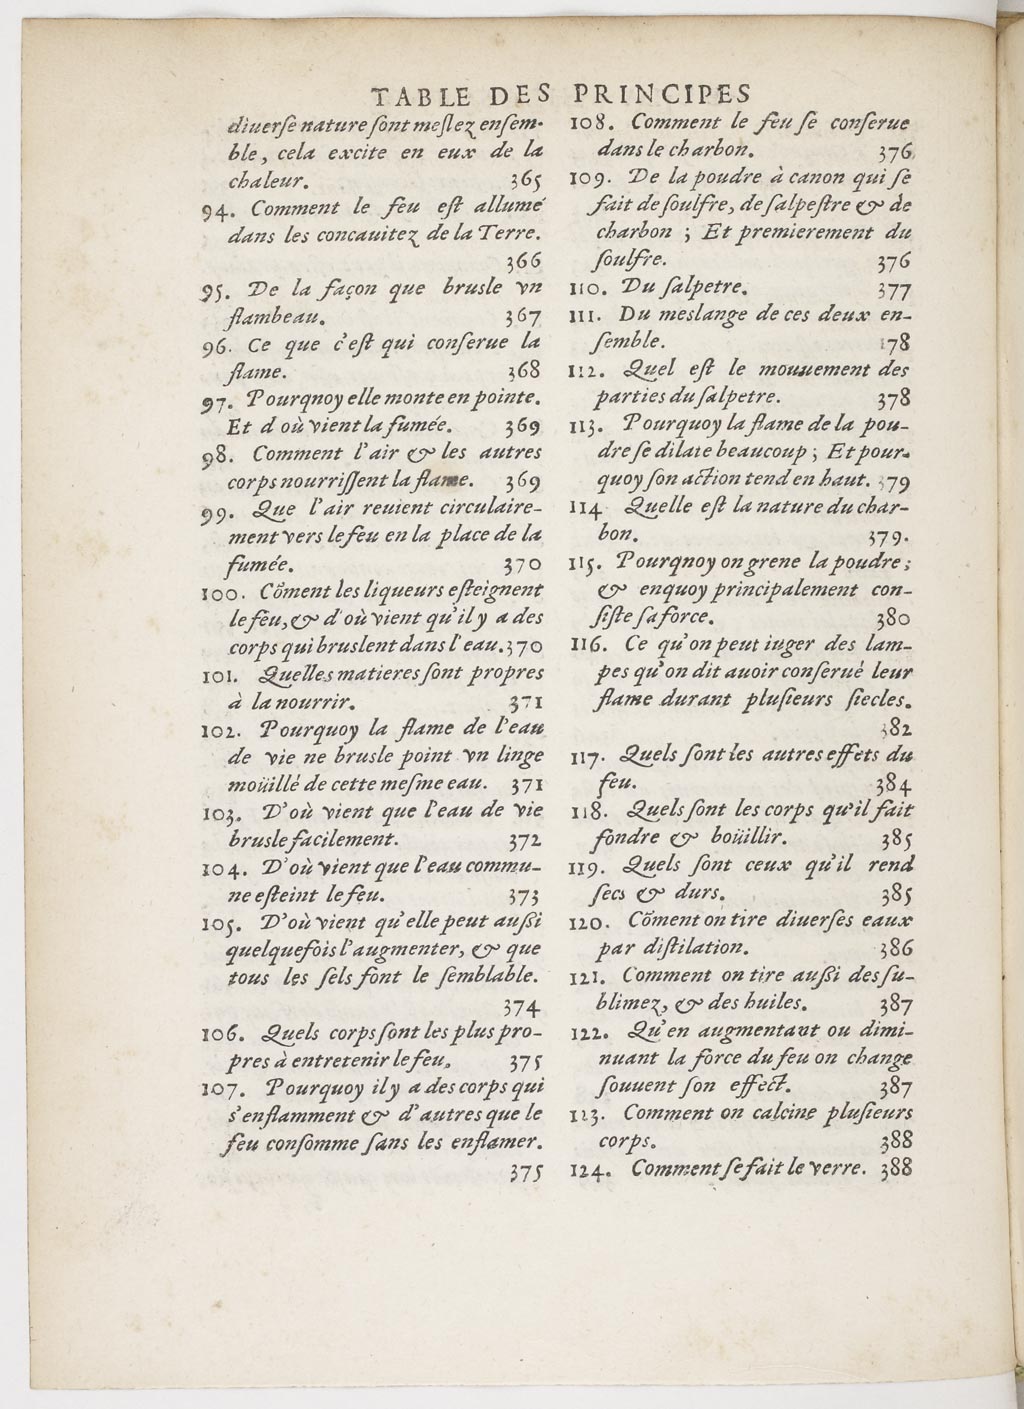 TABLE DES PRINCIPES
diuerſe nature ſont meſlez enſem-
ble, cela excite en eux de la
chaleur. 365
94. Comment le feu eſt allumé
dans les concauitez de la Terre.
366
95. De la façon que bruſle vn
flambeau. 367
96. Ce que c'eſt qui conſerue la
flame. 368
97. Pourqnoy elle monte en pointe.
Et d où vient la fumée. 369
98. Comment l'air & les autres
corps nourriſſent la flame. 369
99. Que l'air reuient circulaire-
ment vers le feu en la place de la
fumée. 370
100. Cõment les liqueurs eſteignent
le feu, & d'où vient qu'il y a des
corps qui bruſlent dans l'eau. 370
101. Quelles matieres ſont propres
à la nourrir. 371
102. Pourquoy la flame de l'eau
de vie ne bruſle point vn linge
moüillé de cette meſme eau. 371
103. D'où vient que l'eau de vie
bruſle facilement. 372
104. D'où vient que l'eau commu-
ne eſteint le feu. 373
105. D'où vient qu'elle peut außi
quelquefois l'augmenter, & que
tous les ſels font le ſemblable.
374
106. Quels corps ſont les plus pro-
pres à entretenir le feu. 375
107. Pourquoy il y a des corps qui
s'enflamment & d'autres que le
feu conſomme ſans les enflamer.
375
108. Comment le feu ſe conſerue
dans le charbon. 376
109. De la poudre à canon qui ſe
fait de ſoulfre, de ſalpeſtre & de
charbon ; Et premierement du
ſoulfre. 376
110. Du ſalpetre. 377
111. Du meslange de ces deux en-
ſemble. 178
112. Quel eſt le mouuement des
parties du ſalpetre. 378
113. Pourquoy la flame de la pou-
dre ſe dilate beaucoup ; Et pour-
quoy ſon action tend en haut. 379
114 Quelle eſt la nature du char-
bon. 379.
115. Pourqnoy on grene la poudre ;
& enquoy principalement con-
ſiſte ſa force. 380
116. Ce qu'on peut iuger des lam-
pes qu'on dit auoir conſerué leur
flame durant pluſieurs ſiecles.
382
117. Quels ſont les autres effets du
feu. 384
118. Quels ſont les corps qu'il fait
fondre & boüillir. 385
119. Quels ſont ceux qu'il rend
ſecs & durs. 385
120. Cõment on tire diuerſes eaux
par diſtilation. 386
121. Comment on tire außi des ſu-
blimez, & des huiles. 387
122. Qu'en augmentant ou dimi-
nuant la force du feu on change
ſouuent ſon effect. 387
123. Comment on calcine pluſieurs
corps. 388
124. Comment ſe fait le verre. 388